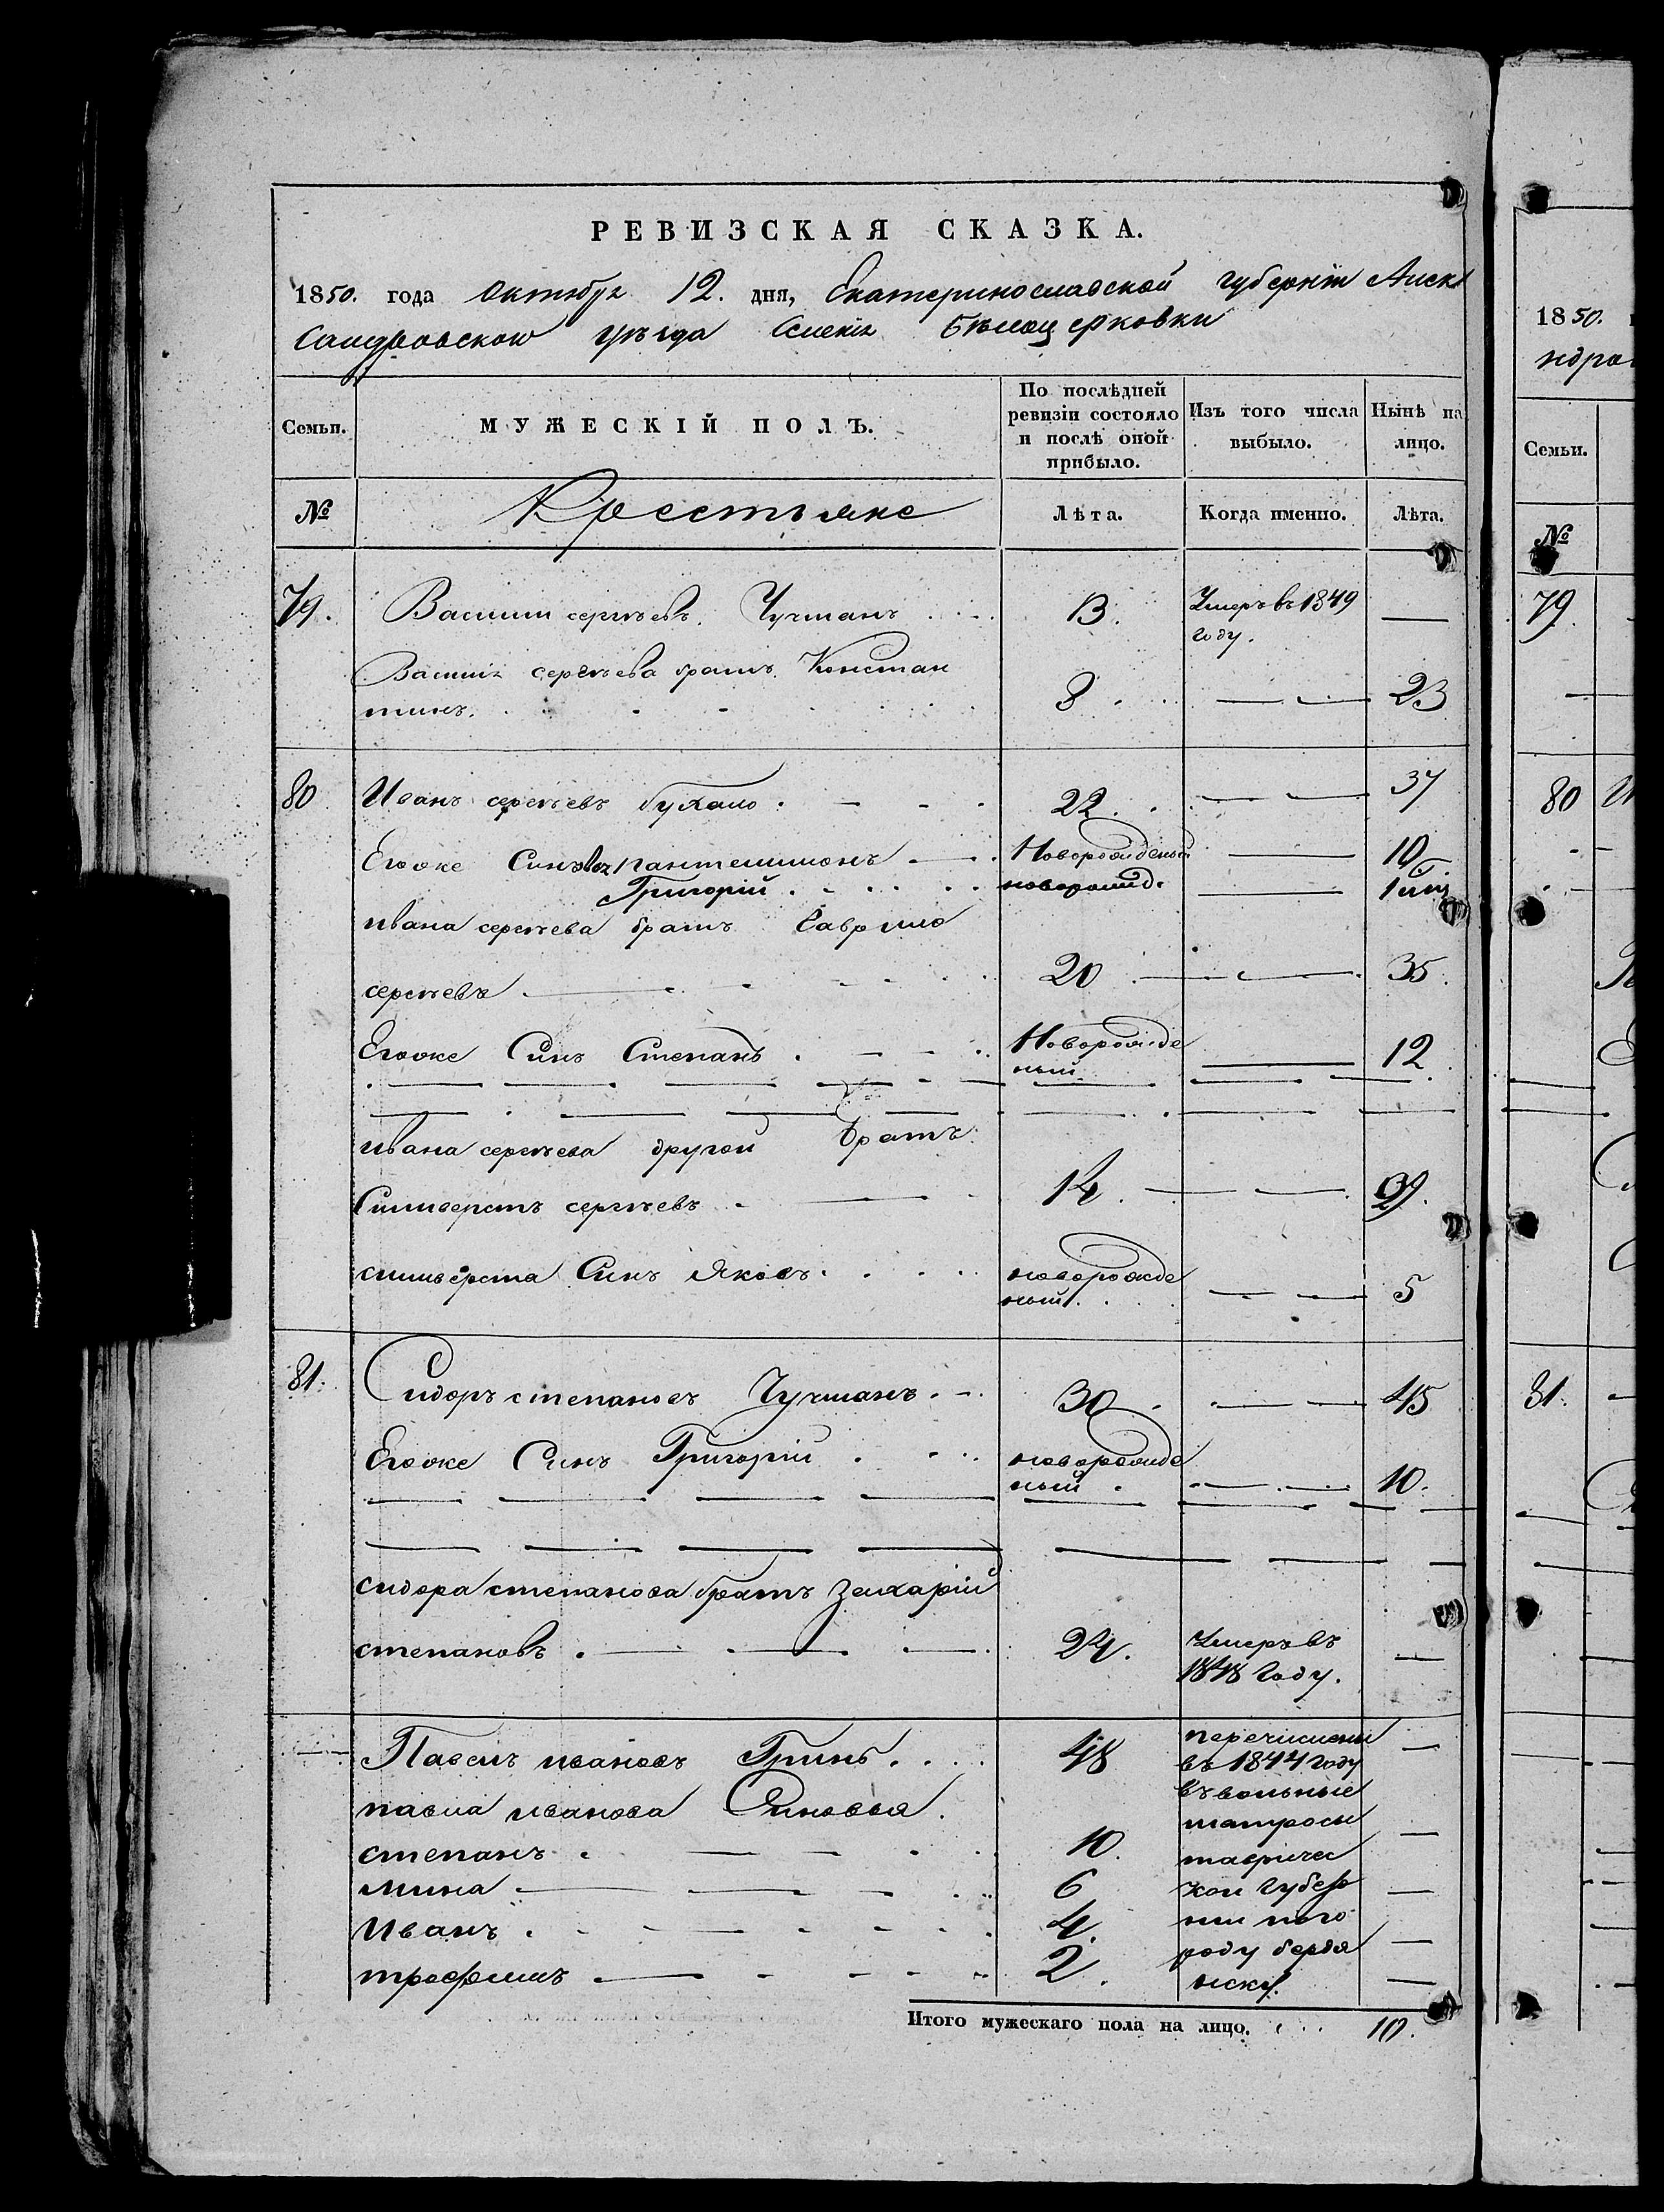 РЕВИЗСКАЯ СКАЗКА.
1850. года Октября 12. дня, Екатеринославской губерніи Алек
сандровского уѣзда Селенія Бѣлоцерковки
Семьи.
МУЖЕСКІЙ ПОЛЪ.
По послѣдней ревизіи состояло и послѣ оной прибыло.
Изъ того числа выбыло.
Нынѣ на лицо.
№
Крестьяне
Лѣта.
Когда именно.
Лѣта.
79. Василий сергѣевъ Чучманъ 13. Умеръ въ 1849 —
году.
Василія сергѣева братъ Констан
тинъ. 8 — 23
80 Иванъ сергѣевъ бухало 22 — 37
Егоже Синовья пантелимонъ Новорожденый — 10
Григорій новорожд. — 1
ивана сергѣева братъ Гаврило
сергѣевъ 20 — 35
Егоже Синъ Степанъ Новорожде — 12
ный
ивана сергѣева другой братъ
Силиверстъ сергѣевъ 14 — 29
силиверста Синъ Яковъ новорожде
ный — 5
81. Сидоръ степановъ Чучманъ 30 — 45
Егоже Синъ Григорій новорожде
ный — 10.
сидора степанова братъ Захарій
степановъ 24. Умеръ въ —
1848 Году.
— Павелъ ивановъ Гринь 48 перечислены —
въ 1844 году
павла иванова Синовья въ вольные
матросы
степанъ 10. тавричес —
мина 6 кой губер —
Иванъ 4. ніи кого
роду бердя —
трофимъ 2. нску. —
Итого мужескаго пола на лицо. 10.
1850.
ндро
Семьи.
№
79.
80 И
81.